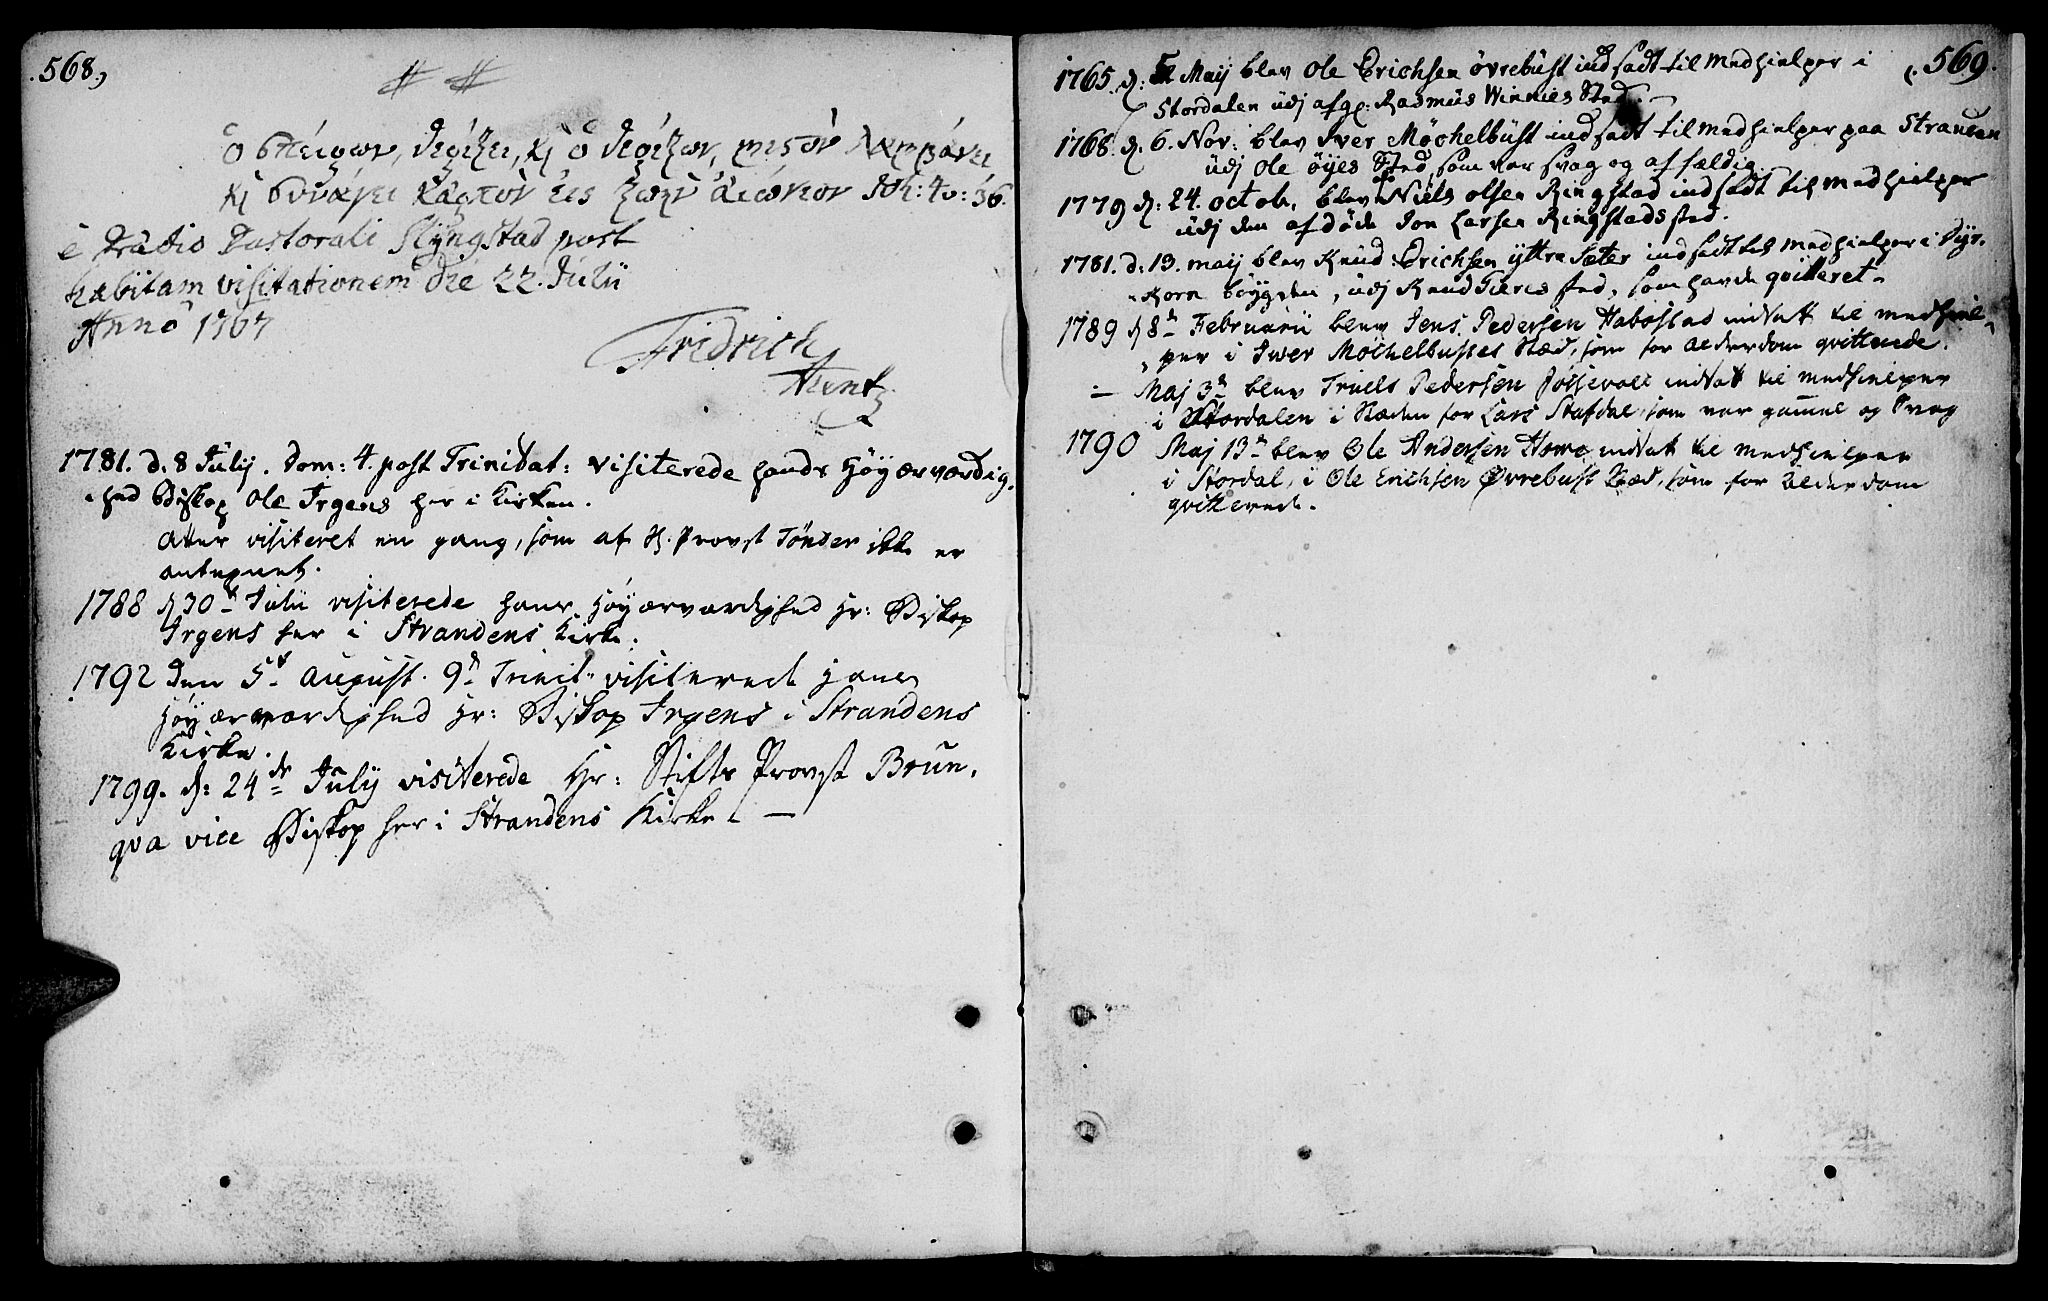 568.
# #
ὁ σπείρων, θερίζει, κϳ ὁ θερίζων, μισθὸν λαμβάνει
κϳ συνάγει καρπὸν εἰς ζωὴν αἰώνιον Joh: 4. v: 36.
è Prædio Pastorali Slyngstad post
habitam visitationem die 22. Julii
Anno 1767
Fridrich
Arentz
1781. d. 8 July. Dom: 4. post Trinitat: visiterede hands Høyærværdig,
hed Biskop Ole Irgens her i Kirken.
Atter visiteret en gang, som af H. Provst Tönder ikke er
antegnet.
1788 d 30t Julii visiterede hans Høyærværdighed Hr: Biskop
Irgens her i Strandens Kirke.
1792 Den 5t August. 9d Trinit: visiterede Hans
Høyærværdighed Hr: Biskop Irgens i Strandens
Kirke.
1799. d: 24de July visiterede Hr: Stifts Provst Brun,
qva vice Biskop her i Strandens Kirke. —
569.
1765. d: Maij blev Ole Erichsen øvrebust indsadt til Medhielper i
Stordalen udj afg: Rasmus Winnies Sted.
1768. d. 6. Nov: blev Iver Møchelbust indsadt til medhielper paa Stranden
udj Ole øyes Sted, som var svag og affældig
1779 d: 24. octobr. blev Niels olsen Ringstad indsadt til medhielper
udj den afdøde Jon Larsen Ringstads sted.
1781. d. 13. maij blev Knud Erichsen yttre Sæter indsadt til medhielper i Dyr-
korn böygden, udj Knud Fieres sted, som havde qvitteret
1789 d 8d Februarii blev Jens Pedersen Habostad indsat til medhiel-
per i Iwer Møchelbustes Stæd, som for alderdom qvitterede.
— Maj 3d blev Truels Pedersen indsat til medhielper
i Stordalen i Stæden for Lars Stafdal, som var gammel og svag
1790 Maj 13d blev Ole Andersen Howe indsat til medhielper
i Stordal, i Ole Erichsen Øvrebust Stæd, som for alderdom
qvitterede.